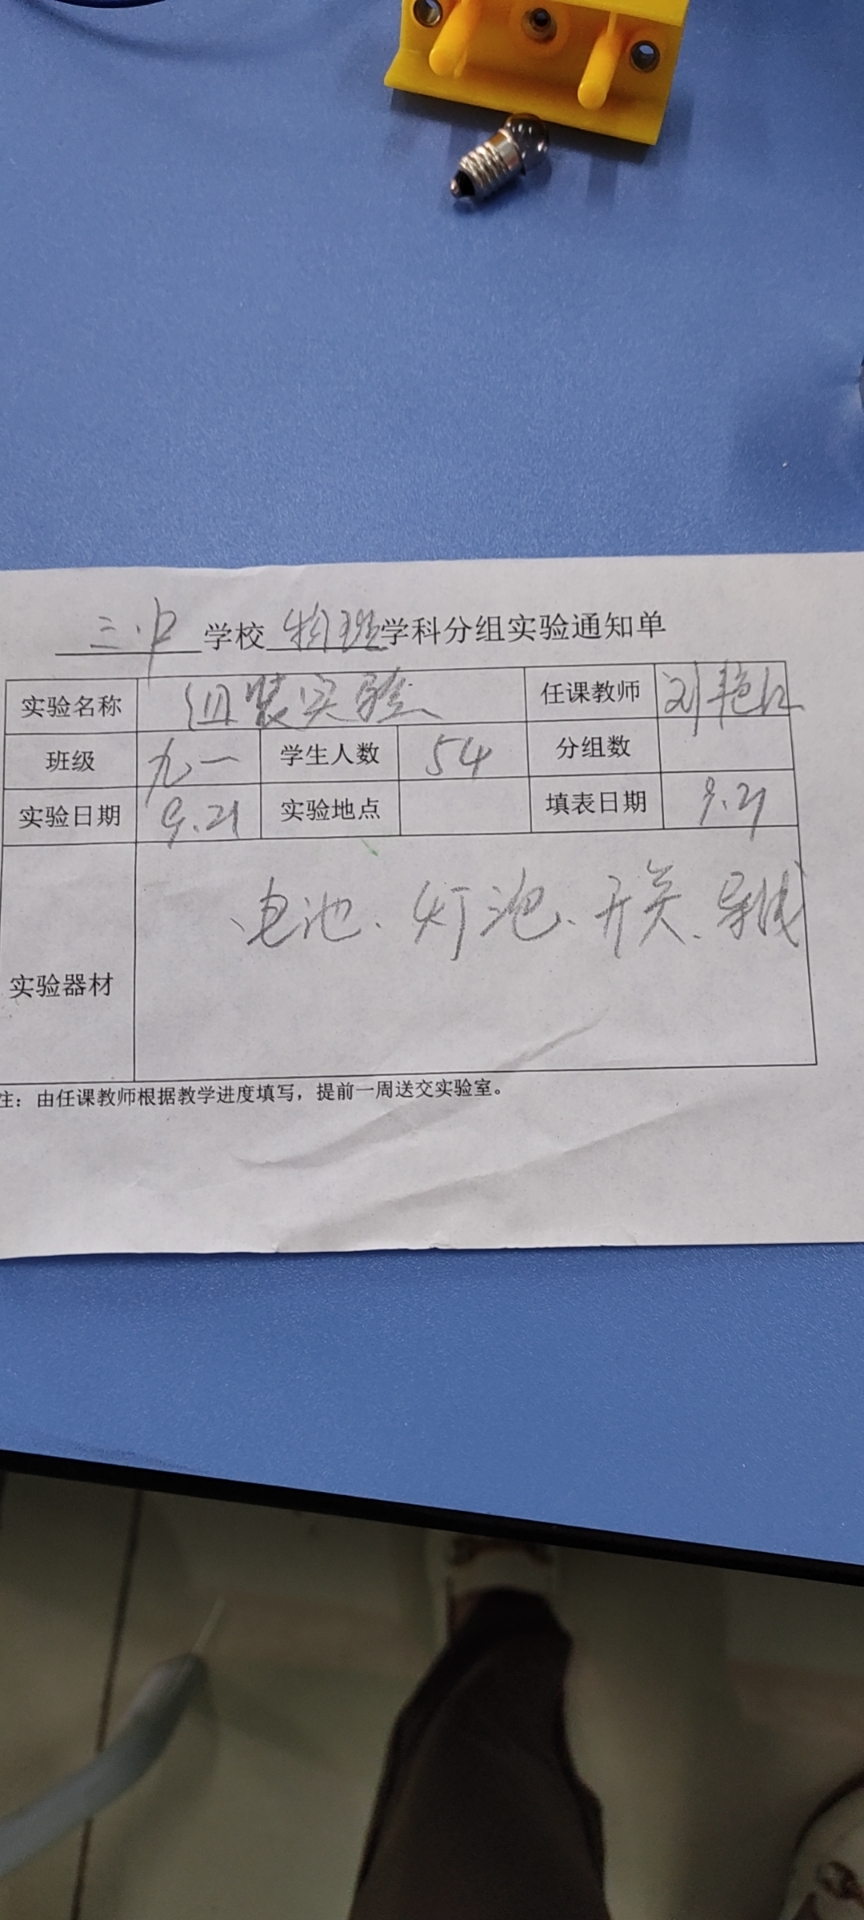 三中学校物理学科分组实验通知单
实验名称 组装实验 任课教师 刘艳红
班级 九一 学生人数 54 分组数
实验日期 9.21 实验地点 填表日期 9.21
实验器材 电池、灯泡、开关、导线
注：由任课教师根据教学进度填写，提前一周送交实验室。